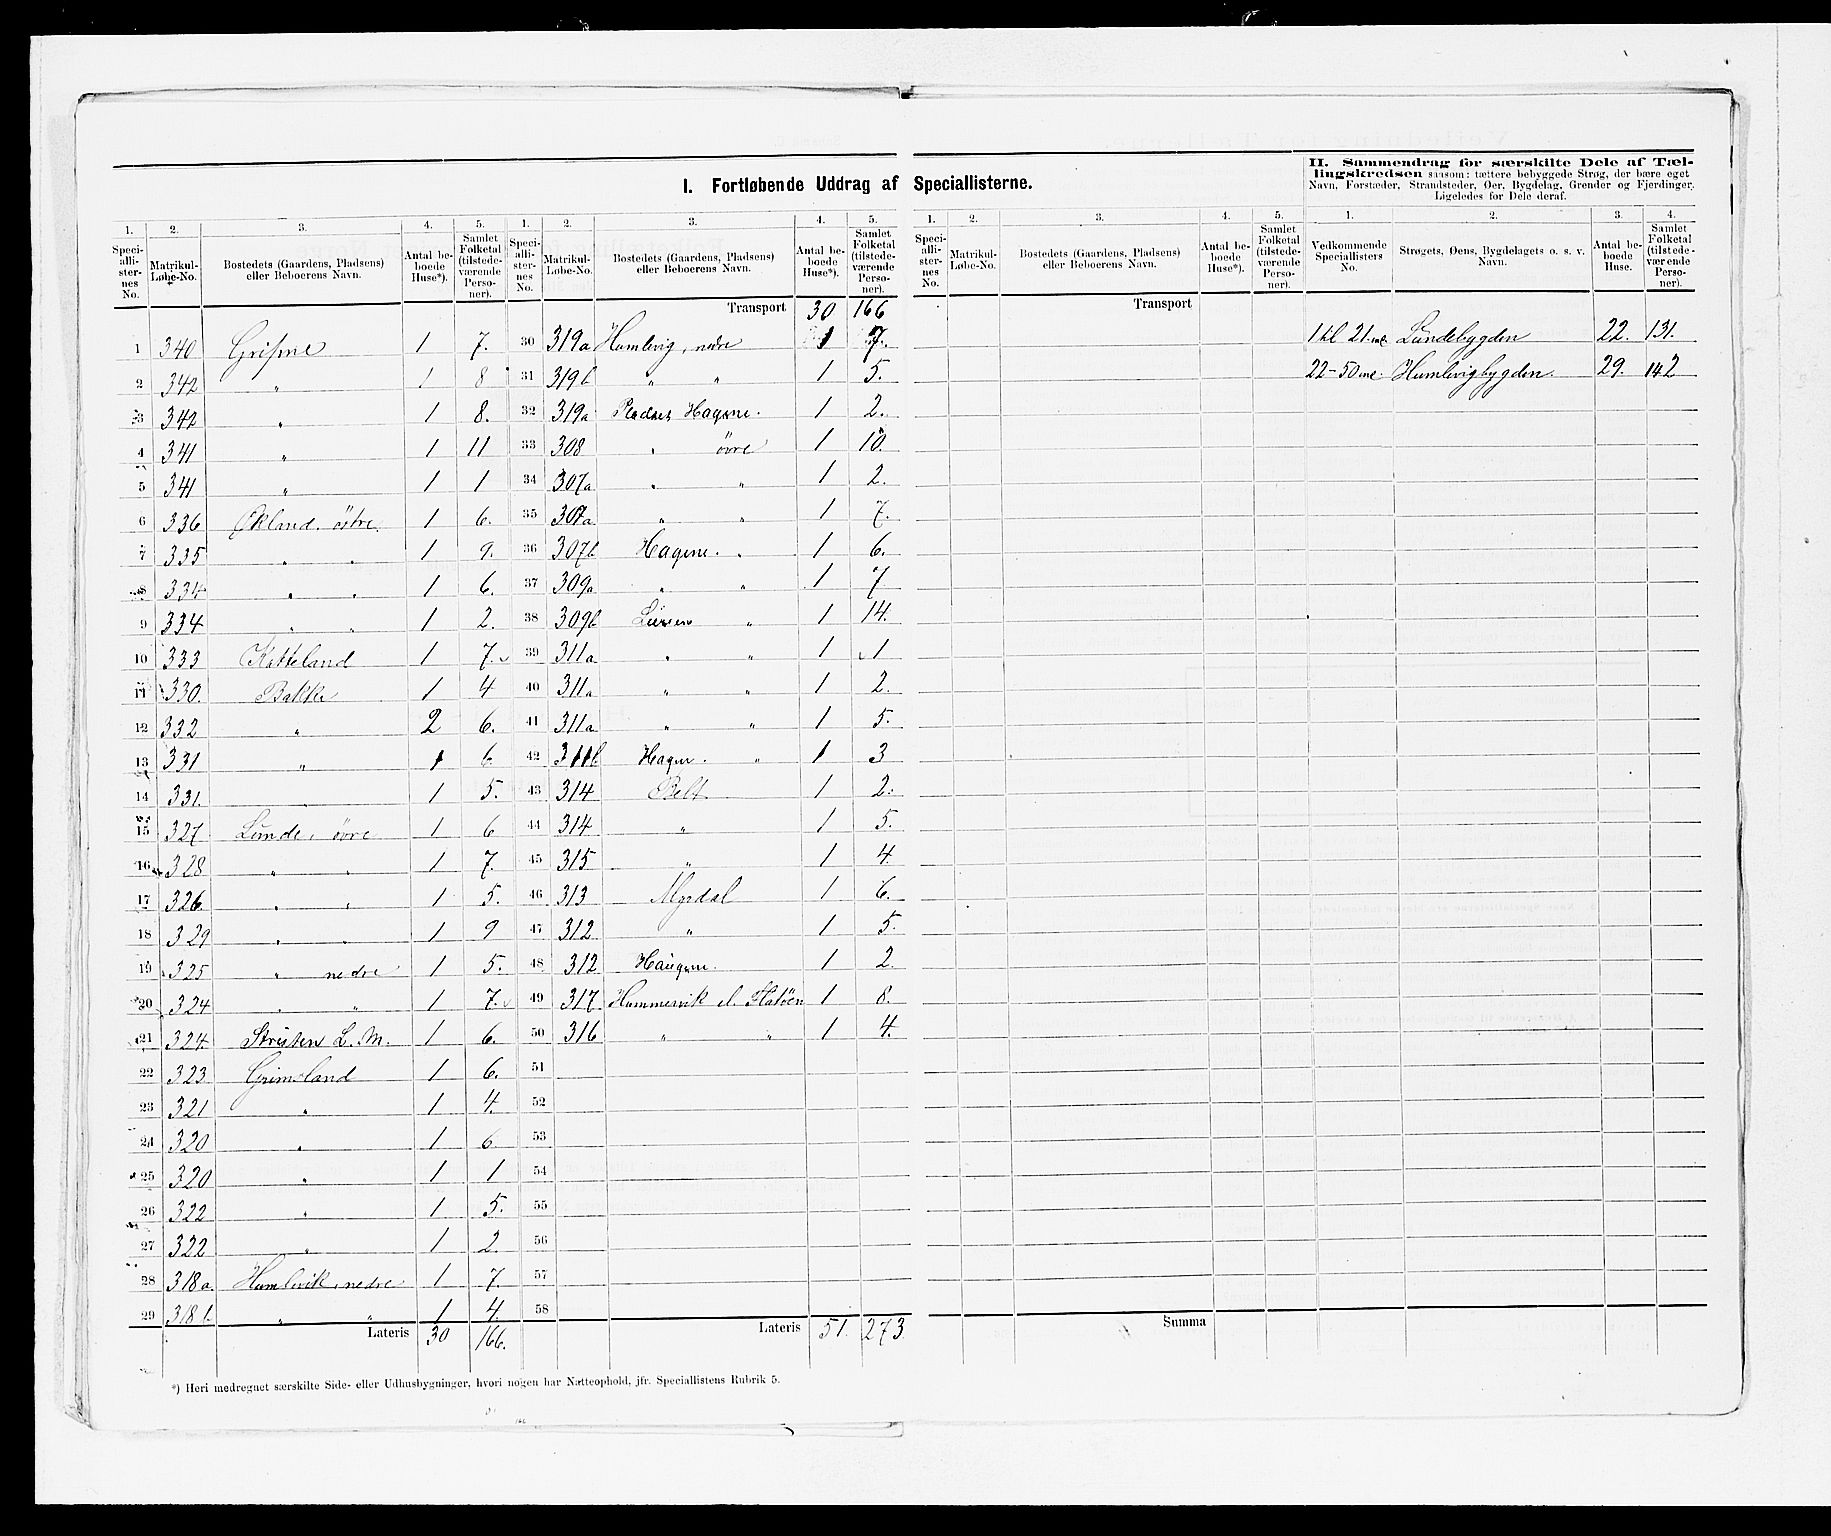 I. Fortløbende Uddrag af Speciallisterne.
II. Sammendrag for særskilte Dele af Tællingskredsen saasom: tættere bebyggede Strøg, der bære eget
Navn, Forstæder, Strandsteder, Øer, Bygdelag, Grender og Fjerdinger.
Ligeledes for Dele deraf.
1. 2. 3. 4. 5. 1. 2. 3. 4. 5. 1. 2. 3. 4. 5. 1. 2. 3. 4.
Speciallisternes No. Matrikul-Løbe-No. Bostedets (Gaardens, Pladsens) eller Beboerens Navn. Antal beboede Huse*). Samlet Folketal (tilstedeværende Personer).
Speciallisternes No. Matrikul-Løbe-No. Bostedets (Gaardens, Pladsens) eller Beboerens Navn. Antal beboede Huse*). Samlet Folketal (tilstedeværende Personer).
Speciallisternes No. Matrikul-Løbe-No. Bostedets (Gaardens, Pladsens) eller Beboerens Navn. Antal beboede Huse*). Samlet Folketal (tilstedeværende Personer).
Vedkommende Speciallisters No. Strøgets, Øens, Bygdelagets o. s. v. Navn. Antal beboede Huse. Samlet Folketal (tilstedeværende Personer).
1 340 1 7.
2 342 " 1 8
3 342 " 1 8.
4 341 " 1 11
5 341 " 1 1
6 336 Økland østre 1 6.
7 335 " " 1 9.
8 334 " " 1 6.
9 334 " " 1 2.
10 333 Katteland 1 7.
11 330. Bakke 1 4
12 332 " 2 6.
13 331 " 1 6
14 331. 1 5.
15 327 Lunde, øvre 1 6
16 328 " " 1 7.
17 326. " " 1 5.
18 329 " " 1 9
19 325 " nedre 1 5.
20 324 " " 1 7.
21 324 L. M. 1 6.
22 323 Grimsland 1 6.
23 321 " 1 4.
24 320 " 1 6
25 320 " 1 1
26 322 " 1 5.
27 322 " 1 2.
28 318a. Humlevik, nedre 1 7.
29 318b " " 1 4.
Lateris 30 166.
Transport 30 166
30 319a Humlevig, nedre 1 7.
31 319b " " 1 5.
32 319a Pladsen Hagene. 1 2.
33 308 " øvre 1 10.
34 307a " " 1 2.
35 307a " " 1 7.
36 307b Hagene. " 1 6.
37 309a " " 1 7
38 309b " 1 14.
39 311a " " 1 1
40 311a " " 1 2.
41 311a " " 1 5.
42 311b Hagen. " 1 3
43 314 Belt 1 2.
44 314 " 1 5.
45 315 " 1 4.
46 313 Myrdal 1 6.
47 312 " 1 5.
48 312 Haugene. 1 2.
49 317 Hummervik el. 1 8.
50 316 " " 1 4.
51
52
53
54
55
56
57
58
Lateris 51. 273
Transport
Summa
1 til 21 Lundebygden 22. 131.
22-50 Humlevigbygden. 29. 142
*) Heri medregnet særskilte Side- eller Udhusbygninger, hvori nogen har Natteophold, jfr. Speciallistens Rubrik 5.